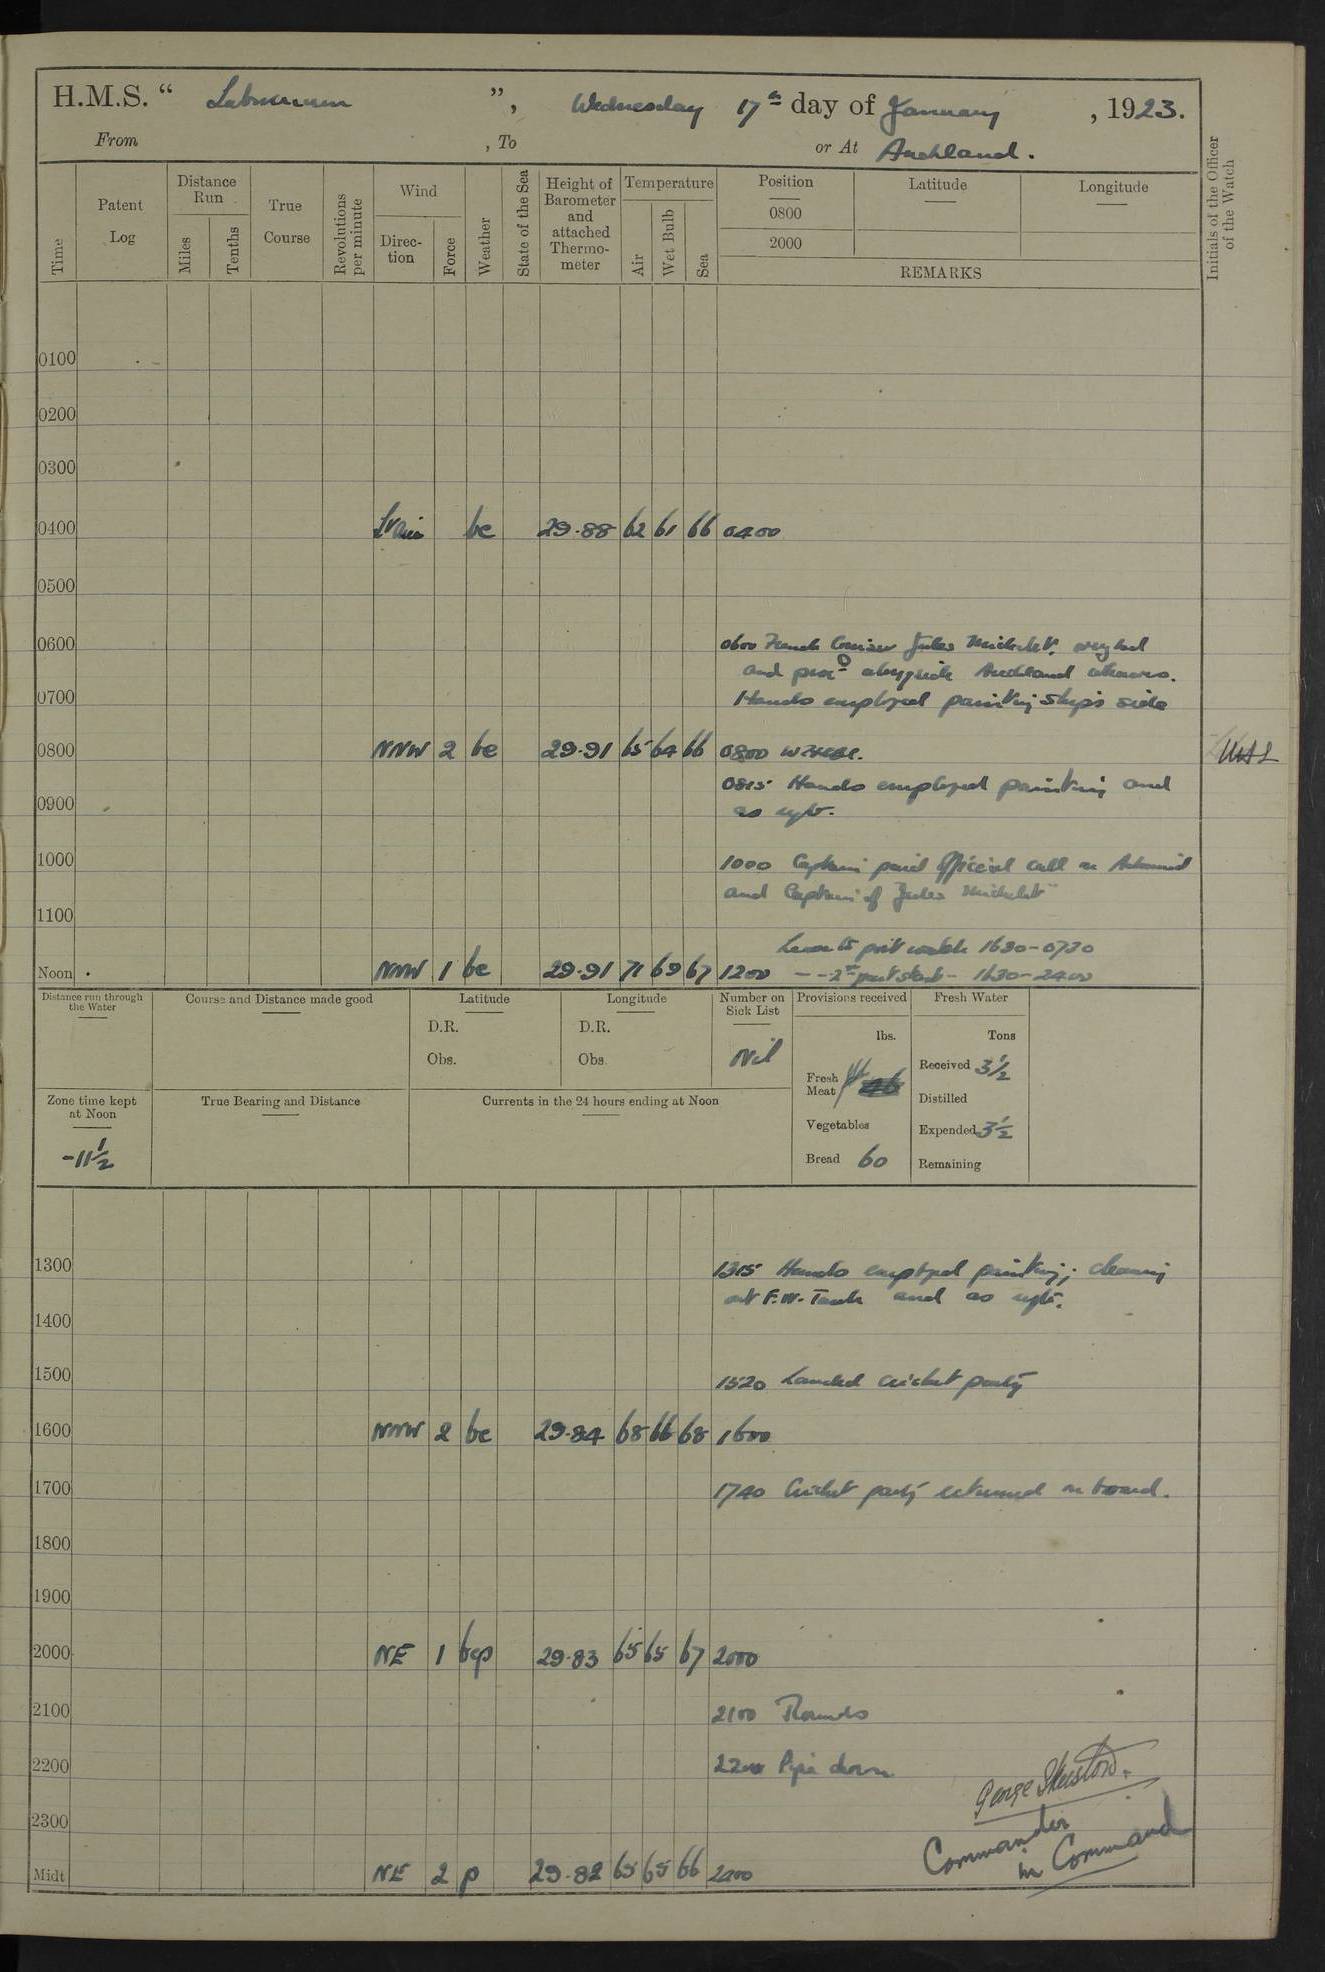 H.M.S. “ Laburnum ”, Wednesday 17th day of January, 1923.
From , To or At Auckland.
Time
Patent Log
Distance Run
Miles
Tenths
True Course
Revolutions per minute
Wind
Direc-tion
Force
Weather
State of the Sea
Height of Barometer and attached Thermo-meter
Temperature
Air
Wet Bulb
Sea
Position
0800
2000
Latitude
Longitude
REMARKS
Initials of the Officer of the Watch
0100
0200
0300
0400 bc 29.88 62 61 66 0400
0500
0600 0600 French Cruiser Jules Michelet weighed
and procd alongside Auckland wharves.
0700 Hands employed painting ship's side
0800 NNW 2 bc 29.91 65 64 66 0800
0815 Hands employed painting and
0900 as reqte.
1000 1000 Captain paid Official call on Admiral
and Captain of Jules Michelet
1100
Leave to port watch 1630-0730
Noon NNW 1 bc 29.91 71 69 67 1200 - - 2nd part starbd - 1630-2400
Distance run through the Water
Course and Distance made good
Latitude
D.R.
Obs.
Longitude
D.R.
Obs.
Number on Sick List
Nil
Provisions received
lbs.
Fresh Meat
Vegetables
Bread 60
Fresh Water
Tons
Received 3½
Distilled
Expended 3½
Remaining
Zone time kept at Noon
-11½
True Bearing and Distance
Currents in the 24 hours ending at Noon
1300 1315 Hands employed painting; cleaning
out F.W. Tank and as reqte.
1400
1500 1520 Landed cricket party
1600 NNW 2 bc 29.84 68 66 68 1600
1700 1740 Cricket party returned on board.
1800
1900
2000 NE 1 bcp 29.83 65 65 67 2000
2100 2100 Rounds
2200 2200 Pipe down
2300 George
Commander
in Command
Midt NE 2 p 29.82 65 65 66 2400